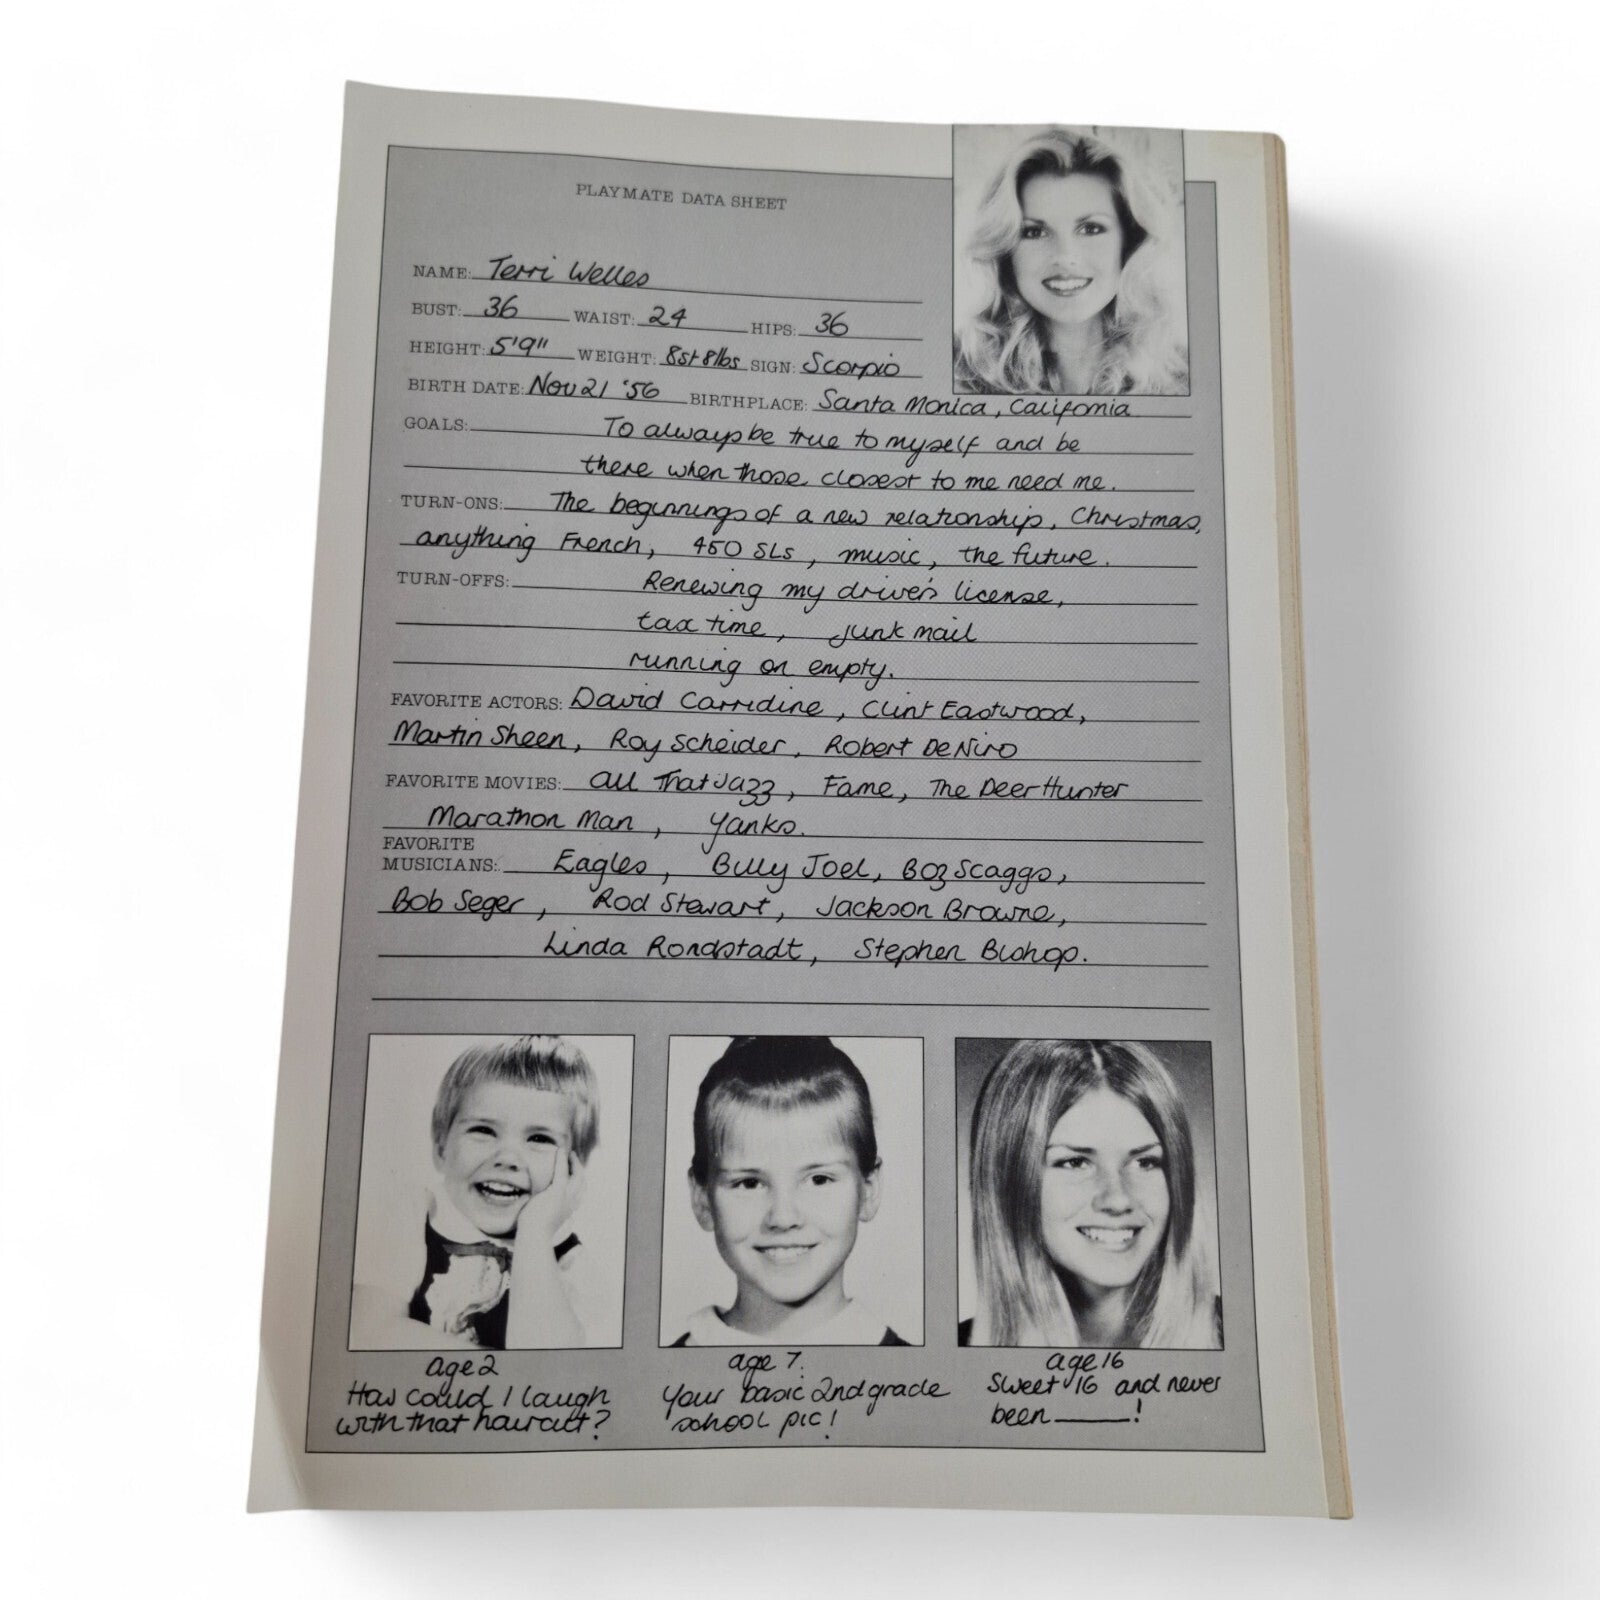 PLAYMATE DATA SHEET
NAME: Terri Welles
BUST: 36 WAIST: 24 HIPS: 36
HEIGHT: 5'9" WEIGHT: 8st 8lbs SIGN: Scorpio
BIRTH DATE: Nov 21 '56 BIRTHPLACE: Santa Monica, California
GOALS: To always be true to myself and be
there when those closest to me need me.
TURN-ONS: The beginnings of a new relationship, Christmas,
anything French, 450 SLs, music, the future.
TURN-OFFS: Renewing my driver's license,
tax time, junk mail
running on empty.
FAVORITE ACTORS: David Carridine, Clint Eastwood,
Martin Sheen, Roy Scheider, Robert De Niro
FAVORITE MOVIES: All That Jazz, Fame, The Deer Hunter
Marathon Man, Yanks.
FAVORITE
MUSICIANS: Eagles, Billy Joel, Boz Scaggs,
Bob Seger, Rod Stewart, Jackson Browne,
Linda Rondstadt, Stephen Bishop.
age 2
How could I laugh
with that haircut?
age 7.
Your basic 2nd grade
school pic!
age 16
Sweet 16 and never
been ______!